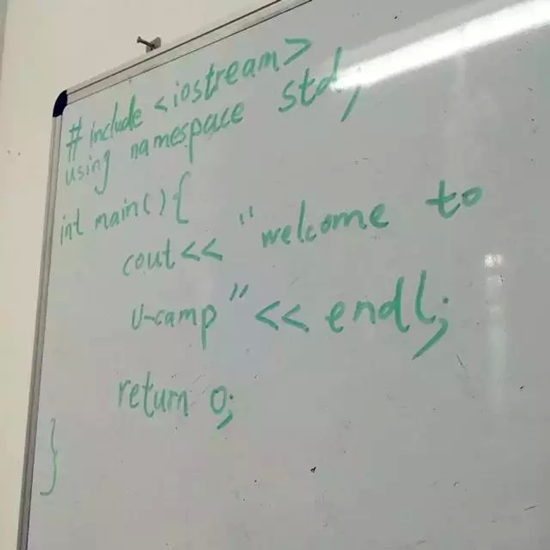 # include <iostream>
using namespace std;
int main() {
cout<< "welcome to
U-camp" << endl;
return 0;
}